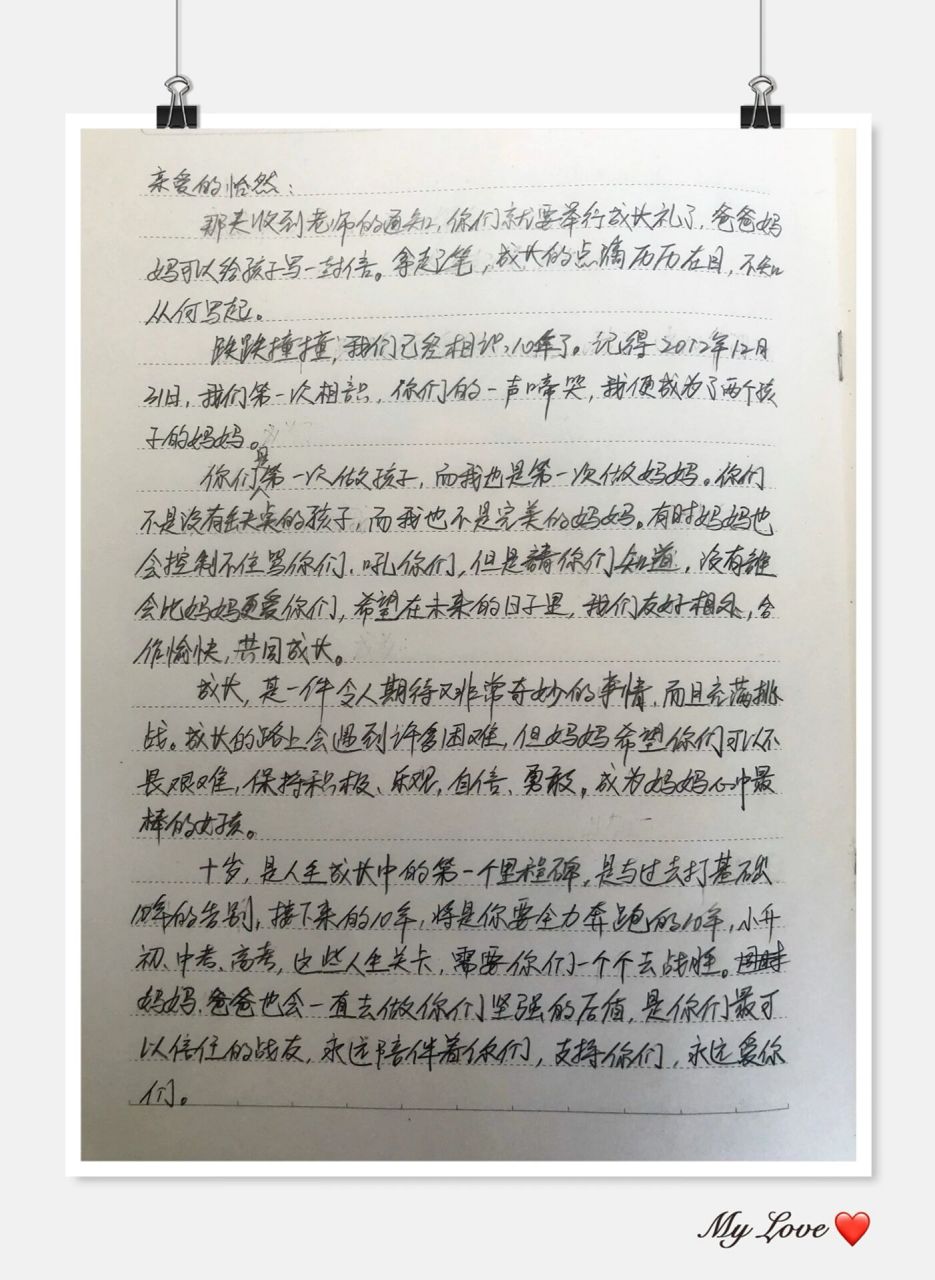 亲爱的怡然：
那天收到老师的通知，你们就要举行成长礼了，爸爸妈
妈可以给孩子写一封信。拿起笔，成长的点滴历历在目，不知
从何写起。
跌跌撞撞，我们已经相识10年了。记得2012年12月
31日，我们第一次相识，你们的一声啼哭，我便成为了两个孩
子的妈妈。
你们是第一次做孩子，而我也是第一次做妈妈。你们
不是没有缺点的孩子，而我也不是完美的妈妈。有时妈妈也
会控制不住骂你们、吼你们，但是請你们知道，没有誰
会比妈妈更爱你们，希望在未来的日子里，我们友好相处，合
作愉快，共同成长。
成长，是一件令人期待又非常奇妙的事情，而且充满挑
战。成长的路上会遇到许多困难，但妈妈希望你们可以不
畏艰难，保持积极、乐观、自信、勇敢，成为妈妈心中最
棒的女孩。
十岁，是人生成长中的第一个里程碑，是与过去打基础
10年的告别，接下来的10年，将是你要全力奔跑的10年，小升
初、中考、高考，这些人生关卡，需要你们一个个去战胜。
妈妈、爸爸也会一直去做你们坚强的后盾，是你们最可
以信任的战友，永远陪伴着你们，支持你们，永远爱你
们。
My Love